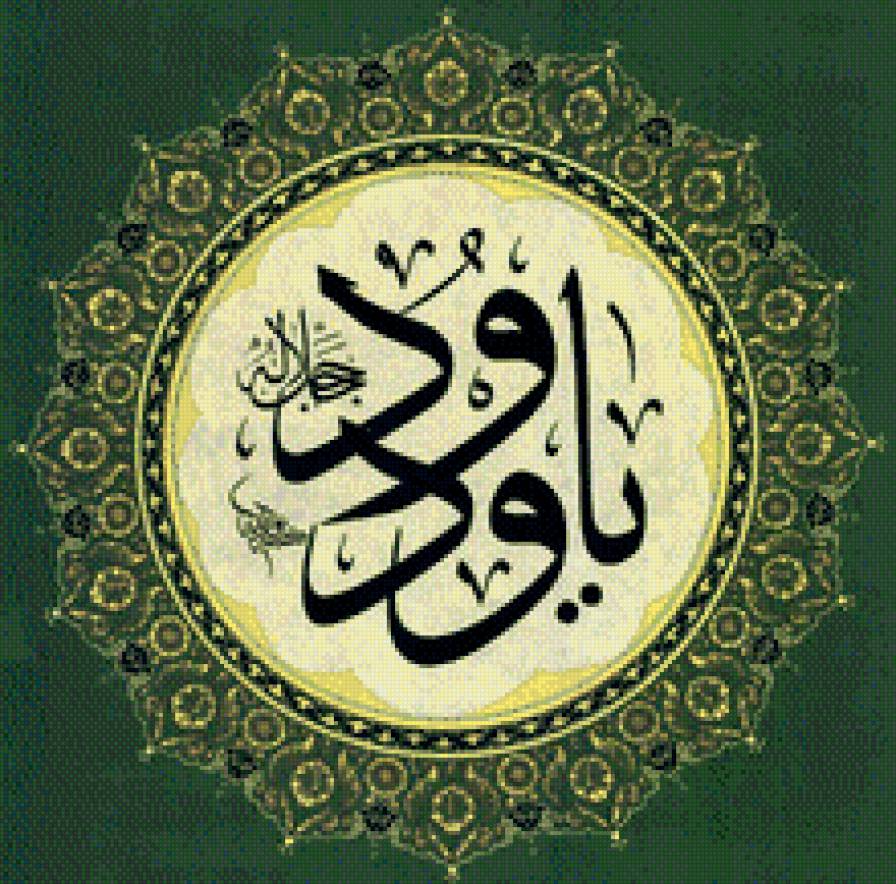 يا ودود
جل جلاله